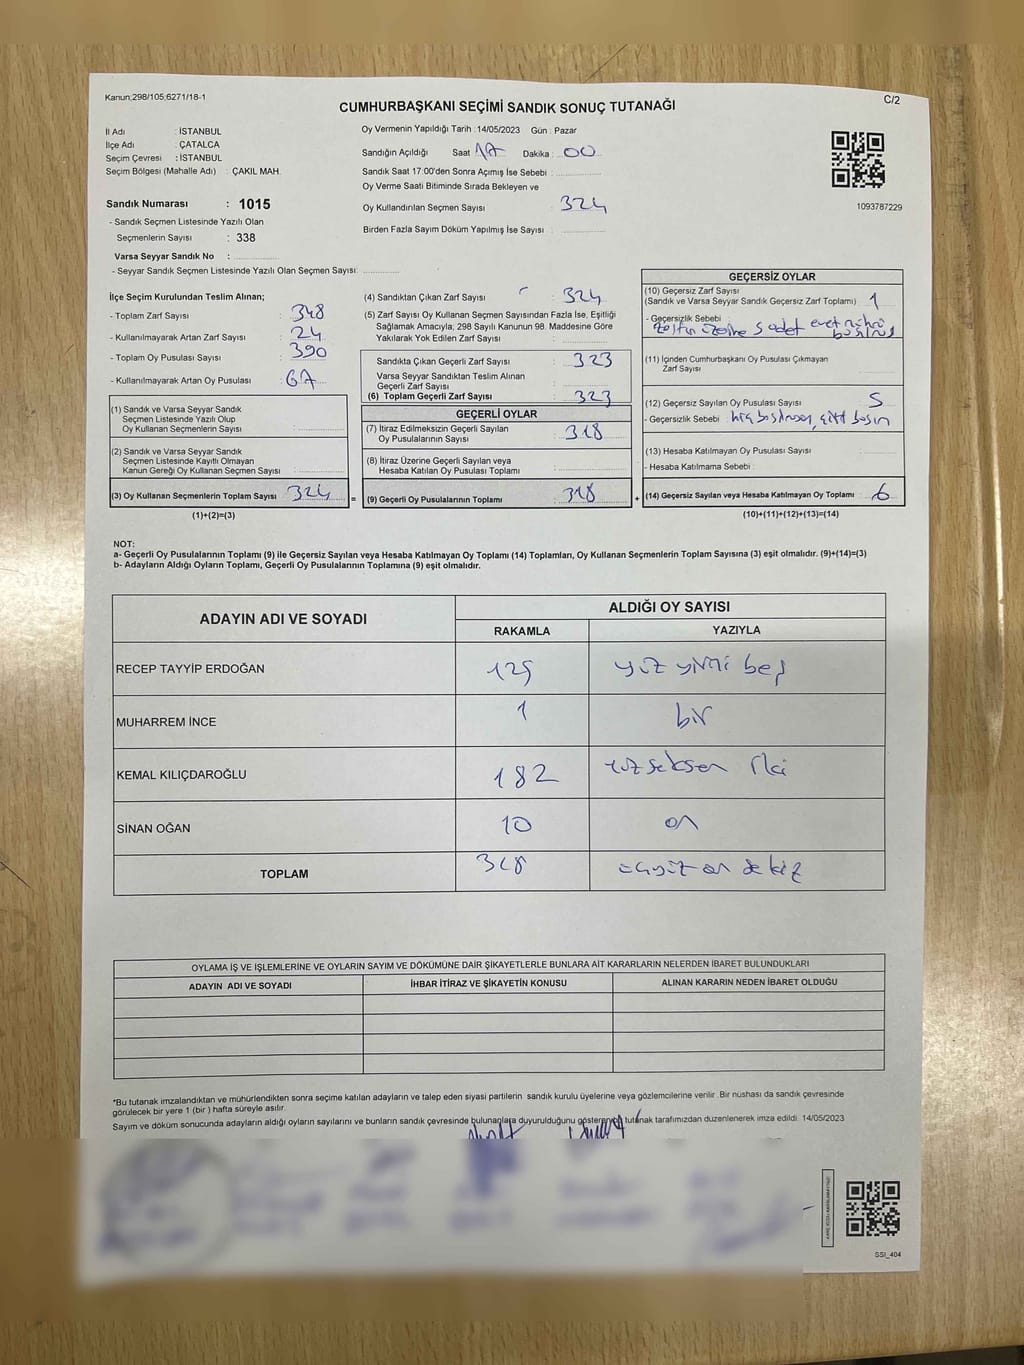 Kanun;298/105;6271/18-1
C/2
CUMHURBAŞKANI SEÇİMİ SANDIK SONUÇ TUTANAĞI
İl Adı : İSTANBUL
İlçe Adı : ÇATALCA
Seçim Çevresi : İSTANBUL
Seçim Bölgesi (Mahalle Adı) : ÇAKIL MAH.
Sandık Numarası : 1015
- Sandık Seçmen Listesinde Yazılı Olan
Seçmenlerin Sayısı : 338
Varsa Seyyar Sandık No :
- Seyyar Sandık Seçmen Listesinde Yazılı Olan Seçmen Sayısı:
Oy Vermenin Yapıldığı Tarih :14/05/2023 Gün : Pazar
Sandığın Açıldığı Saat 17 Dakika : 00
Sandık Saat 17:00'den Sonra Açımış İse Sebebi :
Oy Verme Saati Bitiminde Sırada Bekleyen ve
Oy Kullandırılan Seçmen Sayısı : 324
Birden Fazla Sayım Döküm Yapılmış İse Sayısı :
1093787229
İlçe Seçim Kurulundan Teslim Alınan;
- Toplam Zarf Sayısı : 348
- Kullanılmayarak Artan Zarf Sayısı : 24
- Toplam Oy Pusulası Sayısı : 390
- Kullanılmayarak Artan Oy Pusulası : 67
(1) Sandık ve Varsa Seyyar Sandık
Seçmen Listesinde Yazılı Olup
Oy Kullanan Seçmenlerin Sayısı :
(2) Sandık ve Varsa Seyyar Sandık
Seçmen Listesinde Kayıtlı Olmayan
Kanun Gereği Oy Kullanan Seçmen Sayısı :
(3) Oy Kullanan Seçmenlerin Toplam Sayısı 324
(1)+(2)=(3)
(4) Sandıktan Çıkan Zarf Sayısı : 324
(5) Zarf Sayısı Oy Kullanan Seçmen Sayısından Fazla İse, Eşitliği
Sağlamak Amacıyla; 298 Sayılı Kanunun 98. Maddesine Göre
Yakılarak Yok Edilen Zarf Sayısı :
Sandıkta Çıkan Geçerli Zarf Sayısı : 323
Varsa Seyyar Sandıktan Teslim Alınan
Geçerli Zarf Sayısı :
(6) Toplam Geçerli Zarf Sayısı : 323
GEÇERLİ OYLAR
(7) İtiraz Edilmeksizin Geçerli Sayılan
Oy Pusulalarının Sayısı : 318
(8) İtiraz Üzerine Geçerli Sayılan veya
Hesaba Katılan Oy Pusulası Toplamı :
=
(9) Geçerli Oy Pusulalarının Toplamı : 318
+
GEÇERSİZ OYLAR
(10) Geçersiz Zarf Sayısı
(Sandık ve Varsa Seyyar Sandık Geçersiz Zarf Toplamı) : 1
- Geçersizlik Sebebi :
üzerine 5 adet evet mührü
(11) İçinden Cumhurbaşkanı Oy Pusulası Çıkmayan
Zarf Sayısı :
(12) Geçersiz Sayılan Oy Pusulası Sayısı : 5
- Geçersizlik Sebebi : hiç basılmayan, çift basım
(13) Hesaba Katılmayan Oy Pusulası Sayısı :
- Hesaba Katılmama Sebebi :
(14) Geçersiz Sayılan veya Hesaba Katılmayan Oy Toplamı : 6
(10)+(11)+(12)+(13)=(14)
NOT:
a- Geçerli Oy Pusulalarının Toplamı (9) ile Geçersiz Sayılan veya Hesaba Katılmayan Oy Toplamı (14) Toplamları, Oy Kullanan Seçmenlerin Toplam Sayısına (3) eşit olmalıdır. (9)+(14)=(3)
b- Adayların Aldığı Oyların Toplamı, Geçerli Oy Pusulalarının Toplamına (9) eşit olmalıdır.
ADAYIN ADI VE SOYADI ALDIĞI OY SAYISI
RAKAMLA YAZIYLA
RECEP TAYYİP ERDOĞAN 125 yüz yirmi beş
MUHARREM İNCE 1 bir
KEMAL KILIÇDAROĞLU 182 yüz seksen iki
SİNAN OĞAN 10 on
TOPLAM 318 üçyüz on sekiz
OYLAMA İŞ VE İŞLEMLERİNE VE OYLARIN SAYIM VE DÖKÜMÜNE DAİR ŞİKAYETLERLE BUNLARA AİT KARARLARIN NELERDEN İBARET BULUNDUKLARI
ADAYIN ADI VE SOYADI İHBAR İTİRAZ VE ŞİKAYETİN KONUSU ALINAN KARARIN NEDEN İBARET OLDUĞU
*Bu tutanak imzalandıktan ve mühürlendikten sonra seçime katılan adayların ve talep eden siyasi partilerin sandık kurulu üyelerine veya gözlemcilerine verilir. Bir nüshası da sandık çevresinde
görülecek bir yere 1 (bir ) hafta süreyle asılır.
Sayım ve döküm sonucunda adayların aldığı oyların sayılarını ve bunların sandık çevresinde bulunanlara duyurulduğunu gösteren bu tutanak tarafımızdan düzenlenerek imza edildi. 14/05/2023
SSI_404